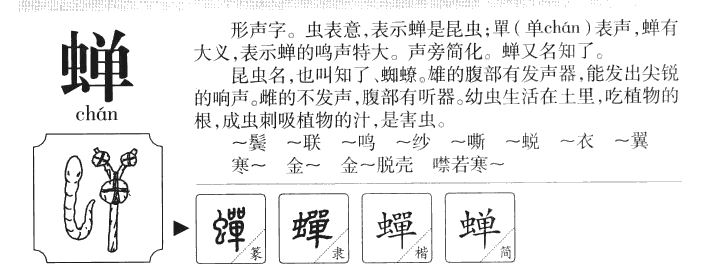 蝉
chán
形声字。虫表意,表示蝉是昆虫;單(单chán)表声,蝉有
大义,表示蝉的鸣声特大。声旁简化。蝉又名知了。
昆虫名,也叫知了、蜘蟟。雄的腹部有发声器,能发出尖锐
的响声。雌的不发声,腹部有听器。幼虫生活在土里,吃植物的
根,成虫刺吸植物的汁,是害虫。
～鬓 ～联 ～鸣 ～纱 ～嘶 ～蜕 ～衣 ～翼
寒～ 金～ 金～脱壳 噤若寒～
蟬 篆
蟬 隶
蟬 楷
蝉 简